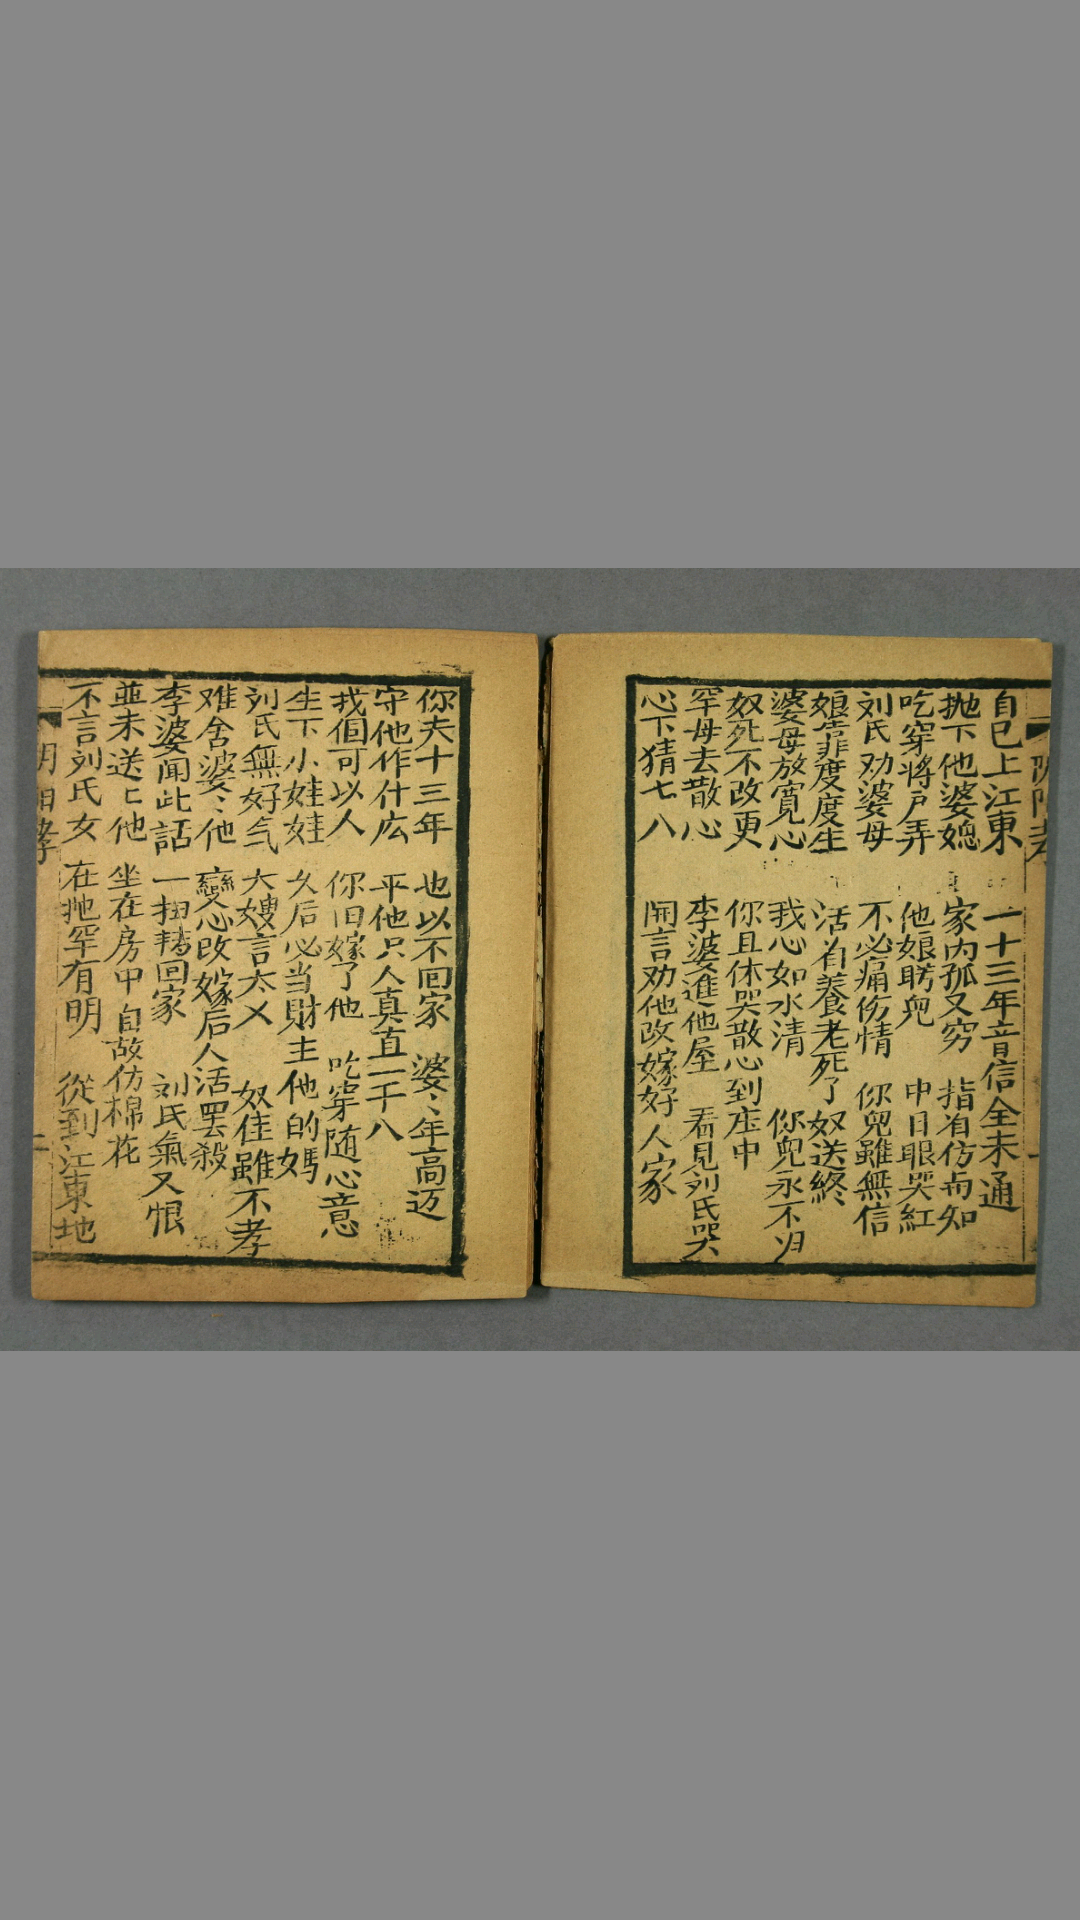 自己上江東 一十三年音信全未通
抛下他婆媳 家内孤又穷 指着仿布知
吃穿將戶弄 他娘盼兒 中日眼哭紅
刘氏劝婆母 不必痛伤情 你兒雖無信
娘靠度度生 活着養老死了奴送終
婆母放寬心 我心如水清 你兒永不归
奴死不改更 你且休哭散心到庄中
罕母去散心 李婆進他屋 看見刘氏哭
心下猜七八 開言劝他改嫁好人家
你夫十三年 也以不囬家 婆〻年高迈
守他作什広 平他只人真直一千八
我個可以人 你旧嫁了他 吃穿随心意
生下小娃娃 久后必当財主他的媽
刘氏無好气 大嫂言太乂 奴佳雖不孝
难舍婆〻他 變心改嫁后人活罢殺
李婆聞此話 一扭轉囬家 刘氏氣又恨
並未送〻他 坐在房中自故仿棉花
不言刘氏女 在抛罕有明 從到江東地
二